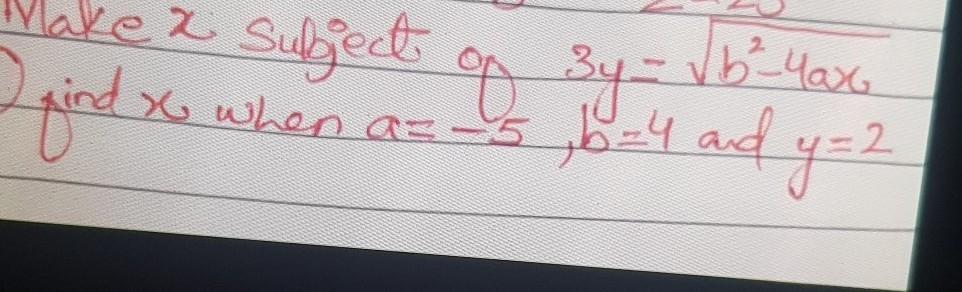 Make x subject of 3y = √b² - 4ax
) find x when a = -5 , b = 4 and y = 2